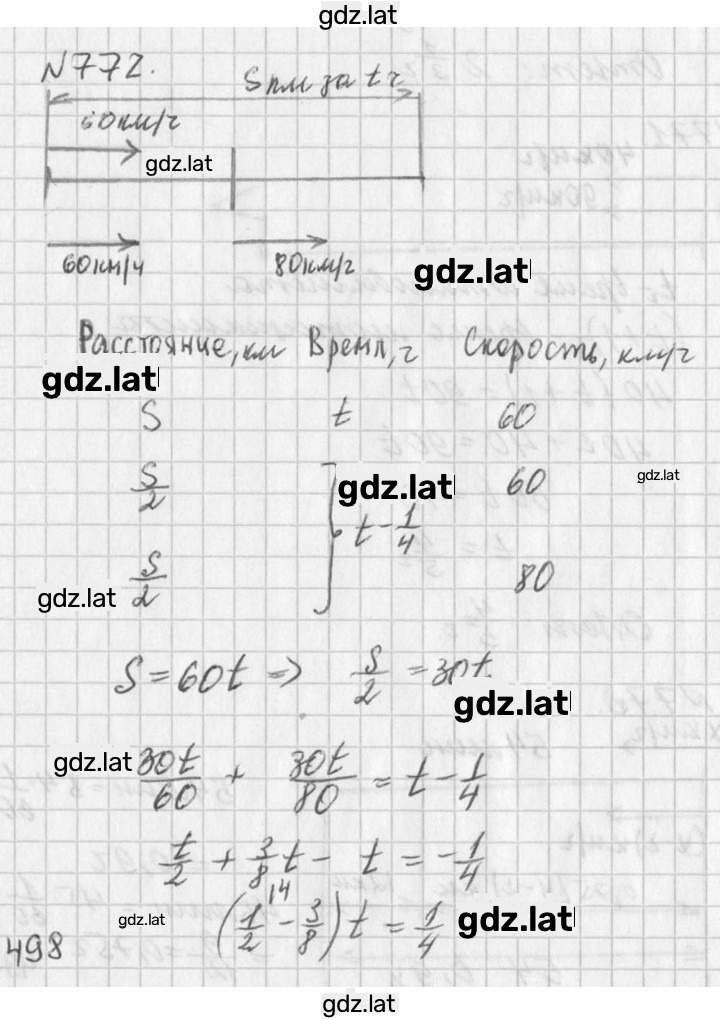 gdz.lat
N772.
S км за t ч
60км/ч
gdz.lat
60км/ч 80км/ч
gdz.lat
Расстояние, км Время, ч Скорость, км/ч
gdz.lat
S t 60
gdz.lat
S/2 gdz.lat 60
t - 1/4
S/2 80
gdz.lat
S = 60t => S/2 = 30t
gdz.lat
gdz.lat 30t/60 + 30t/80 = t - 1/4
t/2 + 3/8 t - t = - 1/4
gdz.lat (1/2 - 3/8) t = 1/4 gdz.lat
498
gdz.lat